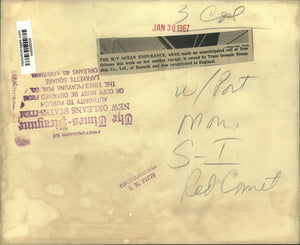 3 Col
JAN 30 1967
THE M/V OCEAN ENDURANCE, which made an unanticipated call at New
Orleans this week on her maiden voyage, is owned by Trans Oceanic Steam-
ship Co., Ltd., of Karachi and was constructed in England.
w/ Port
Mon.
S-I
Red Comet
PHOTOGRAPH BY
The Times-Picayune
NEW ORLEANS STATES-ITEM
AUTHORITY TO PUBLISH
OR COPY MUST BE OBTAINED FROM
THE TIMES-PICAYUNE PUB. CO.
LAFAYETTE SQUARE
NEW ORLEANS, 40, LOUISIANA